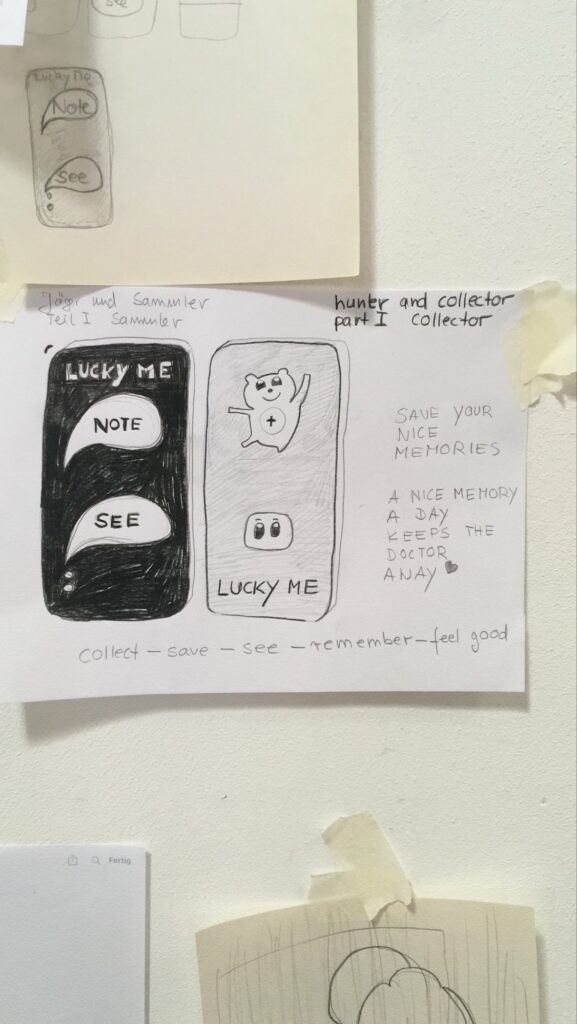 see
Lucky Me
Note
See
Jäger und Sammler
Teil I Sammler
hunter and collector
part I collector
LUCKY ME
NOTE
SEE
+
LUCKY ME
SAVE YOUR
NICE
MEMORIES
A NICE MEMORY
A DAY
KEEPS THE
DOCTOR
AWAY
collect – save – see – remember – feel good
Fertig